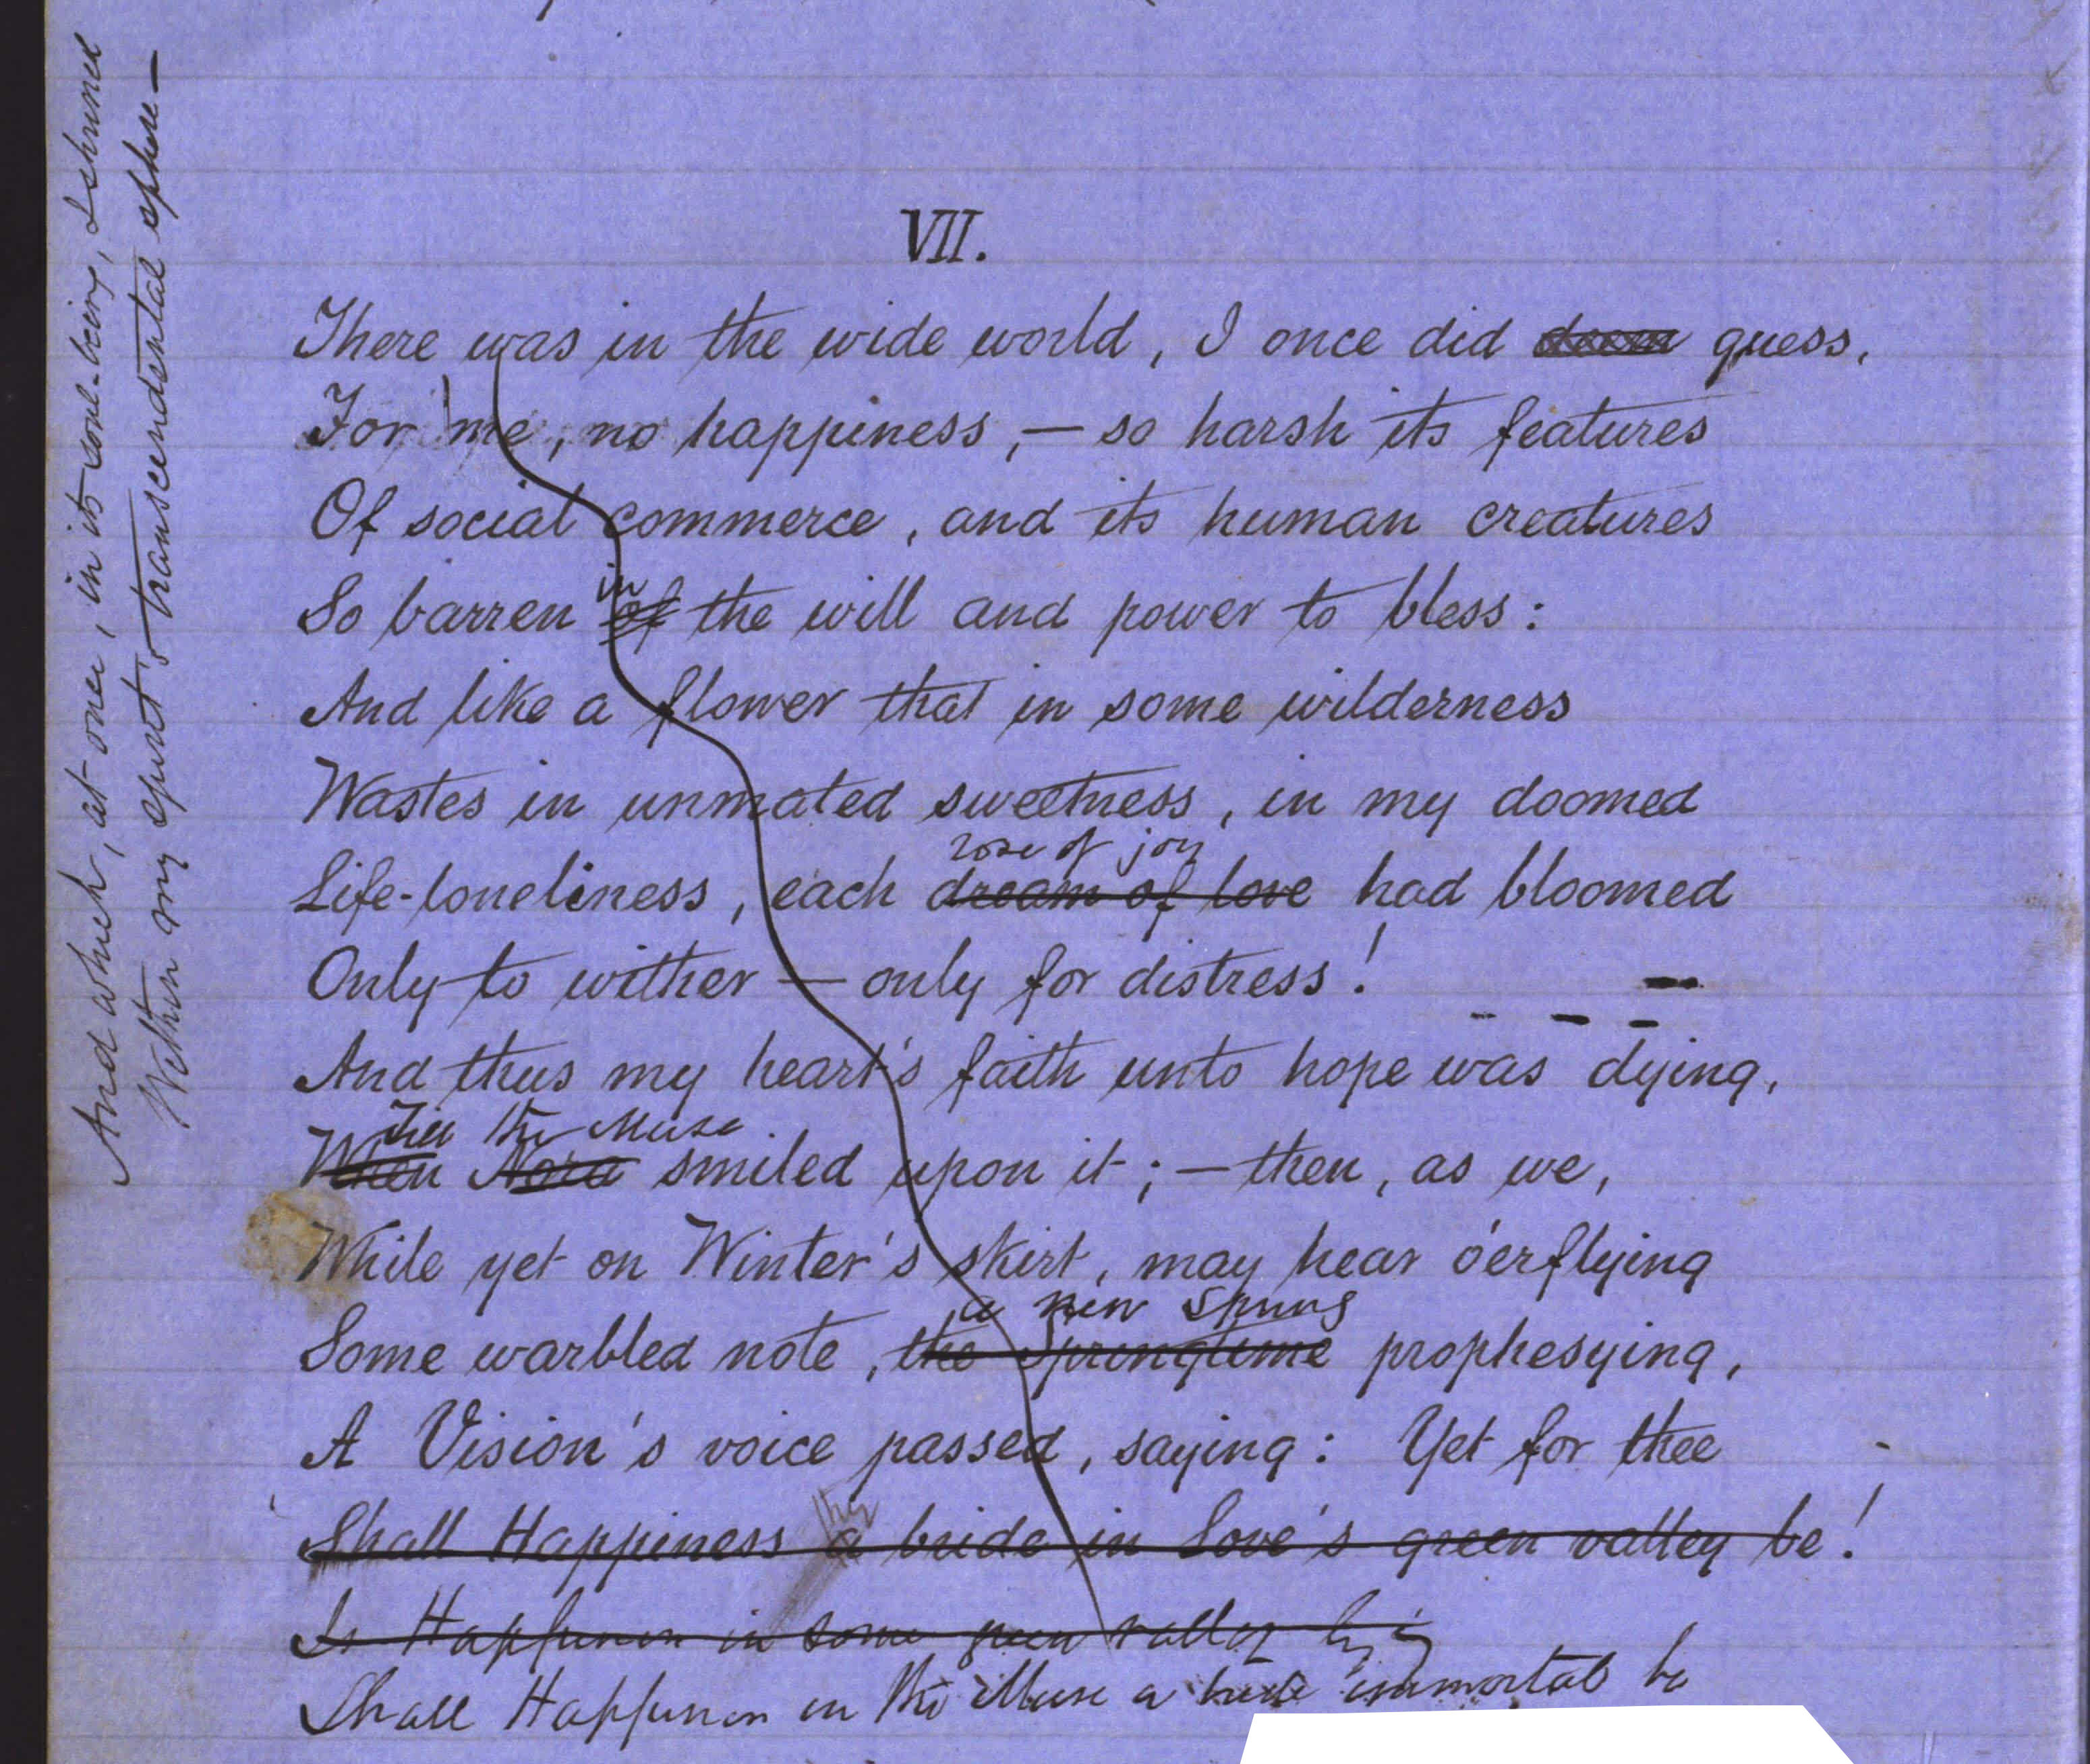 And which, at once, in its soul-being, I shrined
Within my spirit's transcendental sphere—
VII.
There was in the wide world, I once did deem guess,
For me, no happiness,— so harsh its features
Of social commerce, and its human creatures
in
So barren of the will and power to bless:
And like a flower that in some wilderness
Wastes in unmated sweetness, in my doomed
rose of joy
Life-loneliness, each dream of love had bloomed
Only to wither — only for distress!
And thus my heart's faith unto hope was dying,
Till the Muse
When Nora smiled upon it;— then, as we,
While yet on Winter's skirt, may hear o'erflying
a new Spring
Some warbled note, the springtime prophesying,
A Vision's voice passed, saying: Yet for thee
thy
Shall Happiness a bride in Love's green valley be!
Is Happiness in some green valley lying
Shall Happiness in the Muse a bride immortal be